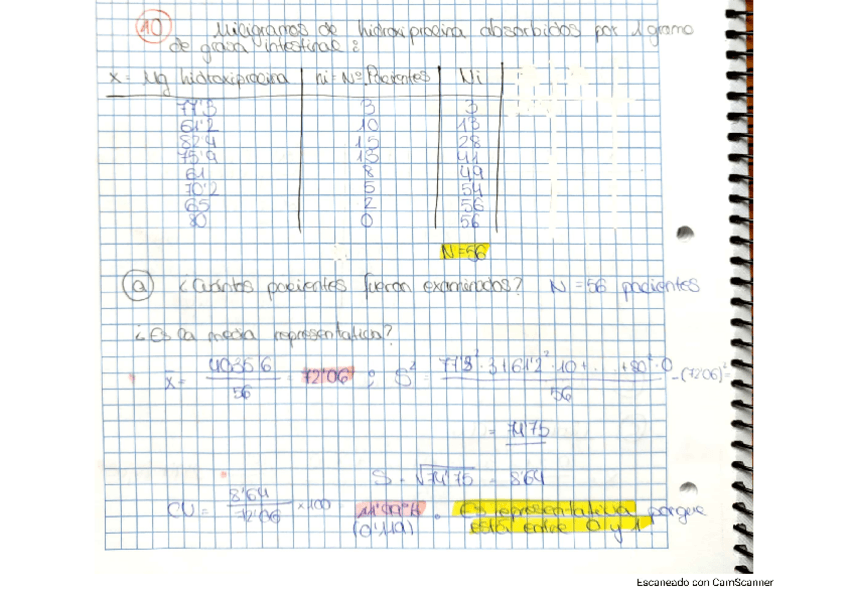 10 Miligramos de hidroxiprolina absorbidos por 1 gramo
de grasa intestinal:
x = Mg hidroxiprolina ni = Nº Pacientes Ni
77'3 3 3
61'2 10 13
82'4 15 28
75'9 13 41
61 8 49
70'2 5 54
65 2 56
80 0 56
N=56
a ¿Cuántos pacientes fueron examinados? N = 56 pacientes
¿Es la media representativa?
x̄ = 4035'6 / 56 = 72'06 ; S² = 77'3²·3+61'2²·10+...+80²·0 / 56 - (72'06)² =
= 74'75
S = √74'75 = 8'64
CV = 8'64 / 72'06 ×100 11'99% (0'119). Es representativa porque
está entre 0 y 1.
Escaneado con CamScanner